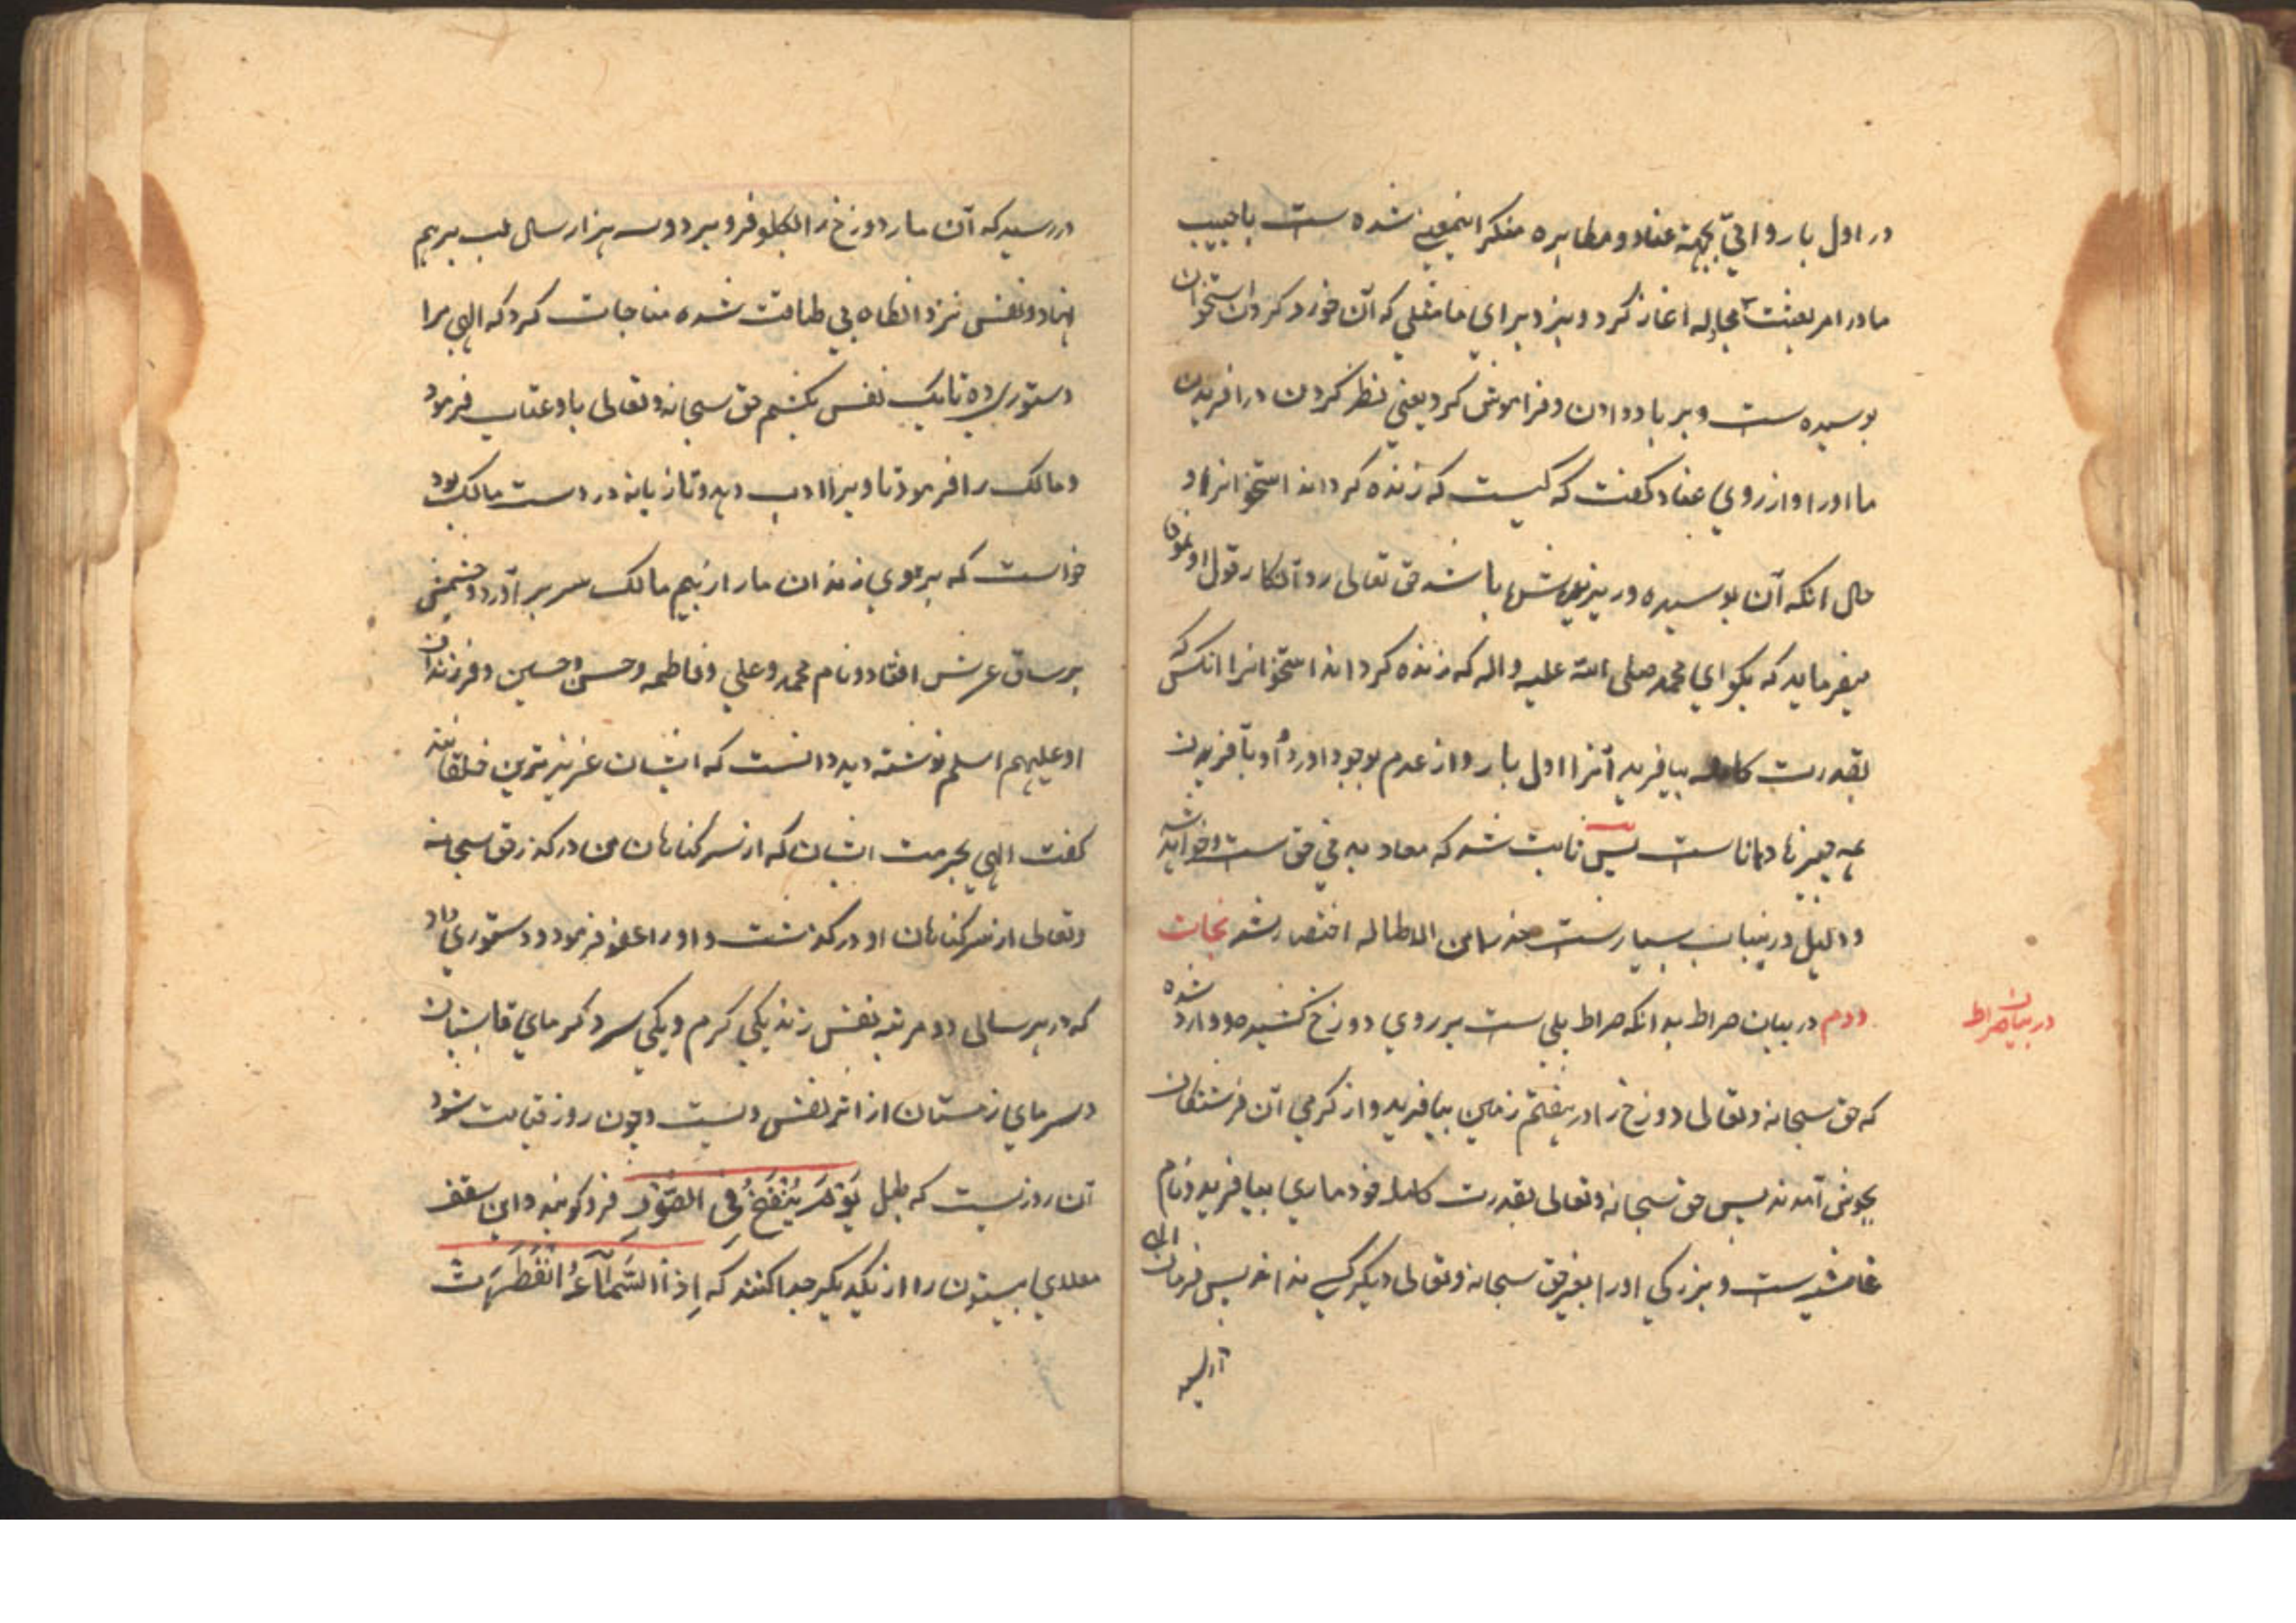 در اول بار و اوقتی بجهة عناد و مکابره منکر اینمعنی شده است با حبیب
ما در امر بعثت مجادله اغاز کرد و بزد برای ما مثلی که آن خورد کردن استخوان
بوسیده ست و بر باد دادن و فراموش کرد یعنی نظر کردن در افریدن
ما اورا و از روی عناد گفت که کیست که زنده کرداند استخوانرا و
حال انکه آن بوسیده و ریزیده باشد حق تعالی رد انکار قول او نموده
میفرماید که بکو ای محمد صلی الله علیه واله که زنده کرداند استخوانرا انکس که
بقدرت کامله بیافرید آنرا اول بار و از عدم بوجود اورد و او بآفریدن
همه چیزها داناست پس ثابت شد که معاد بدنی حق ست و خواهد شد
و دلیل درینباب بسیارست حذرا من الاطاله اختصار شد نجات
دوم در بیان صراط بدانکه صراط پلی ست بر روی دوزخ کشیده و وارد شده
در بیان صراط
که حق سبحانه وتعالی دوزخ را در هفتم زمین بیافرید و از کرمی آن فرشتکان
بجوش آمدند پس حق سبحانه وتعالی بقدرت کامله خود ماری بیافرید و نام
غاشیه ست و بزرکی اورا بغیر حق سبحانه وتعالی دیکر کسی نداند پس فرمان الهی
در رسید که آن مار دوزخ را بکلو فرو برد و سه هزار سال لب برهم
نهاد و نفس نزد انکاه بی طاقت شده مناجات کرد که الهی مرا
دستوری ده تا یک نفس بکشم حق سبحانه وتعالی با او عتاب فرمود
و مالک را فرمود تا ویرا ادب دهد و تازیانه در دست مالک بود
خواست که بر وی زند ان مار از بیم مالک سر بر آورد و چشمش
بر ساق عرش افتاد و نام محمد و علی و فاطمه و حسن و حسین و فرزندان
او علیهم السلم نوشته دید دانست که ایشان عزیزترین خلقانند
کفت الهی بحرمت ایشان که از سر کناهان من درکذر حق سبحانه
وتعالی از سر کناهان او درکذشت و اورا عفو فرمود و دستوری داد
که در هر سالی دو مرتبه نفس زند یکی کرم و یکی سرد کرمای تابستان
و سرمای زمستان از اثر نفس ویست و چون روز قیامت شود
آن روزیست که طبل یَوْمَ یُنْفَخُ فِی الصُّوْرِ فرو کوبند و این سقف
معلای بیستون را از یکدیکر جدا کنند که اِذَا السَّمَآءُ انْفَطَرَتْ